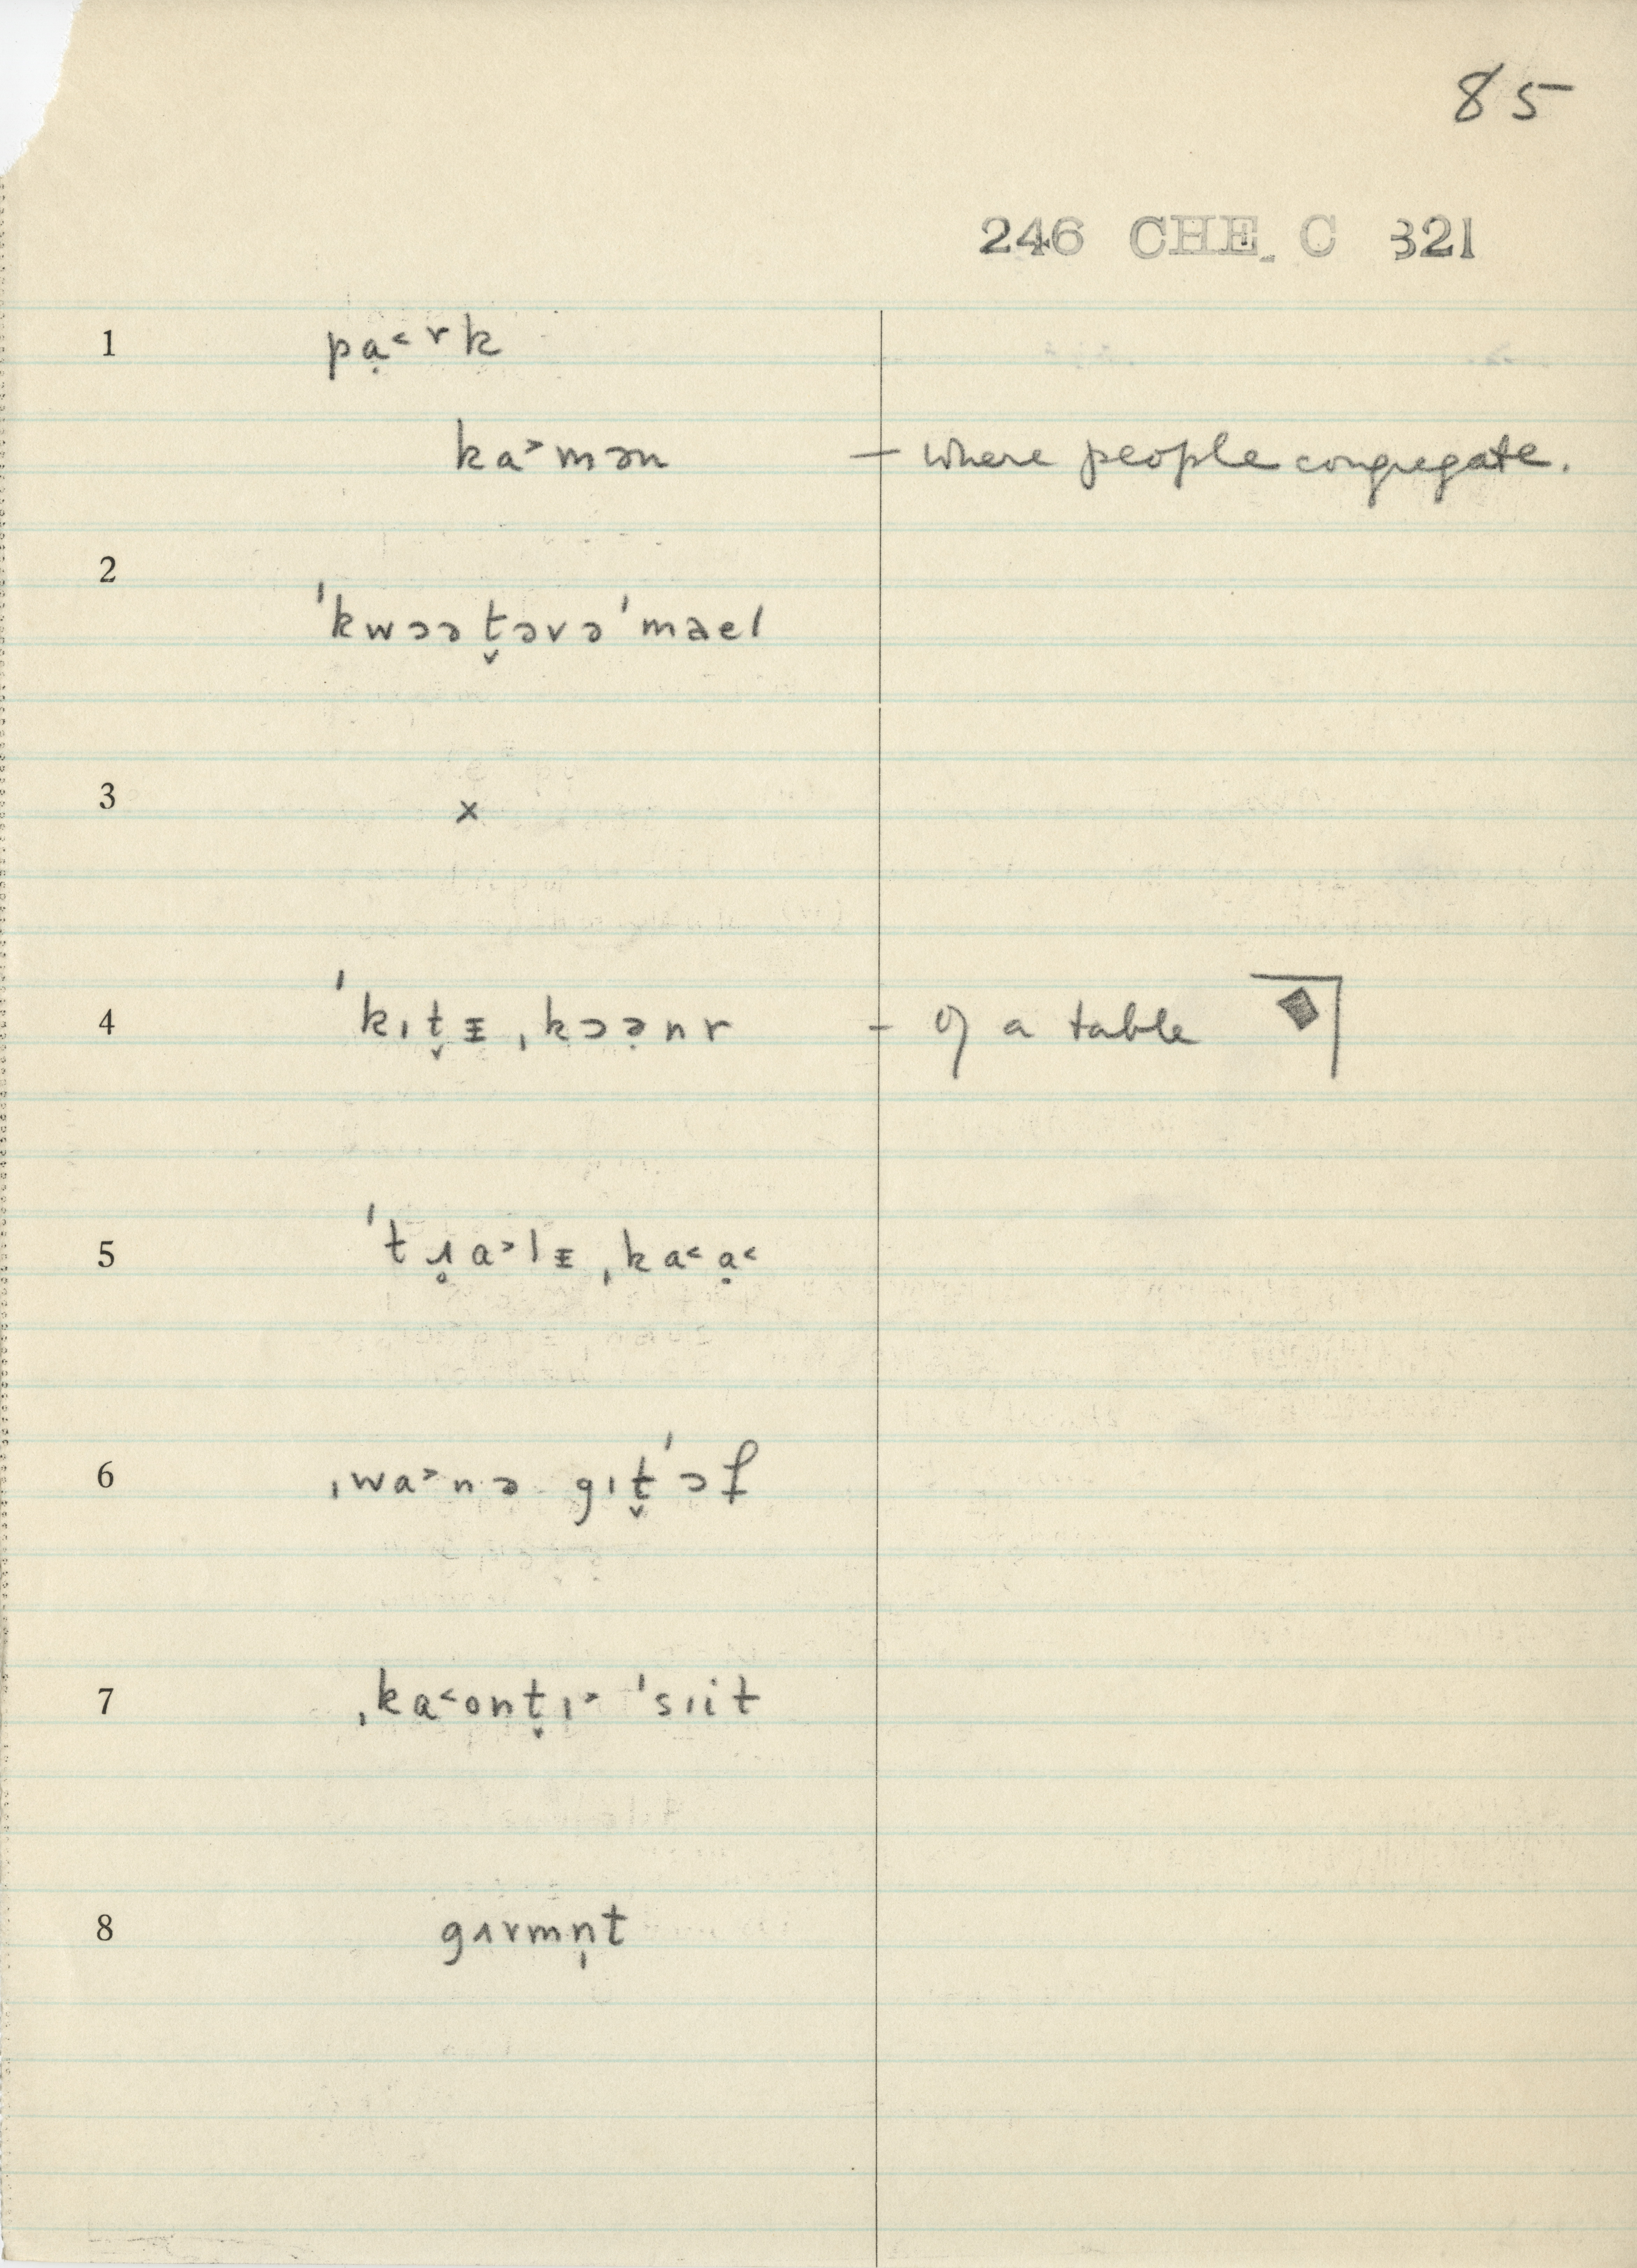 85
246 CHE. C 321
1 pạ˂ɤk
ka˃mən — where people congregate.
2 ˈkwɔə t̬əvə ˈməel
3 x
4 ˈkɪt̬ᵻ ˌkɔə̣nr – of a table
5 ˈtɹ̥a˃lᵻ ˌka˂ạ˂
6 ˌwa˃nə gɪt̬ ˈɔf
7 ˌka˂ont̬ɪ˃ ˈsɪit
8 gɜrmn̩t